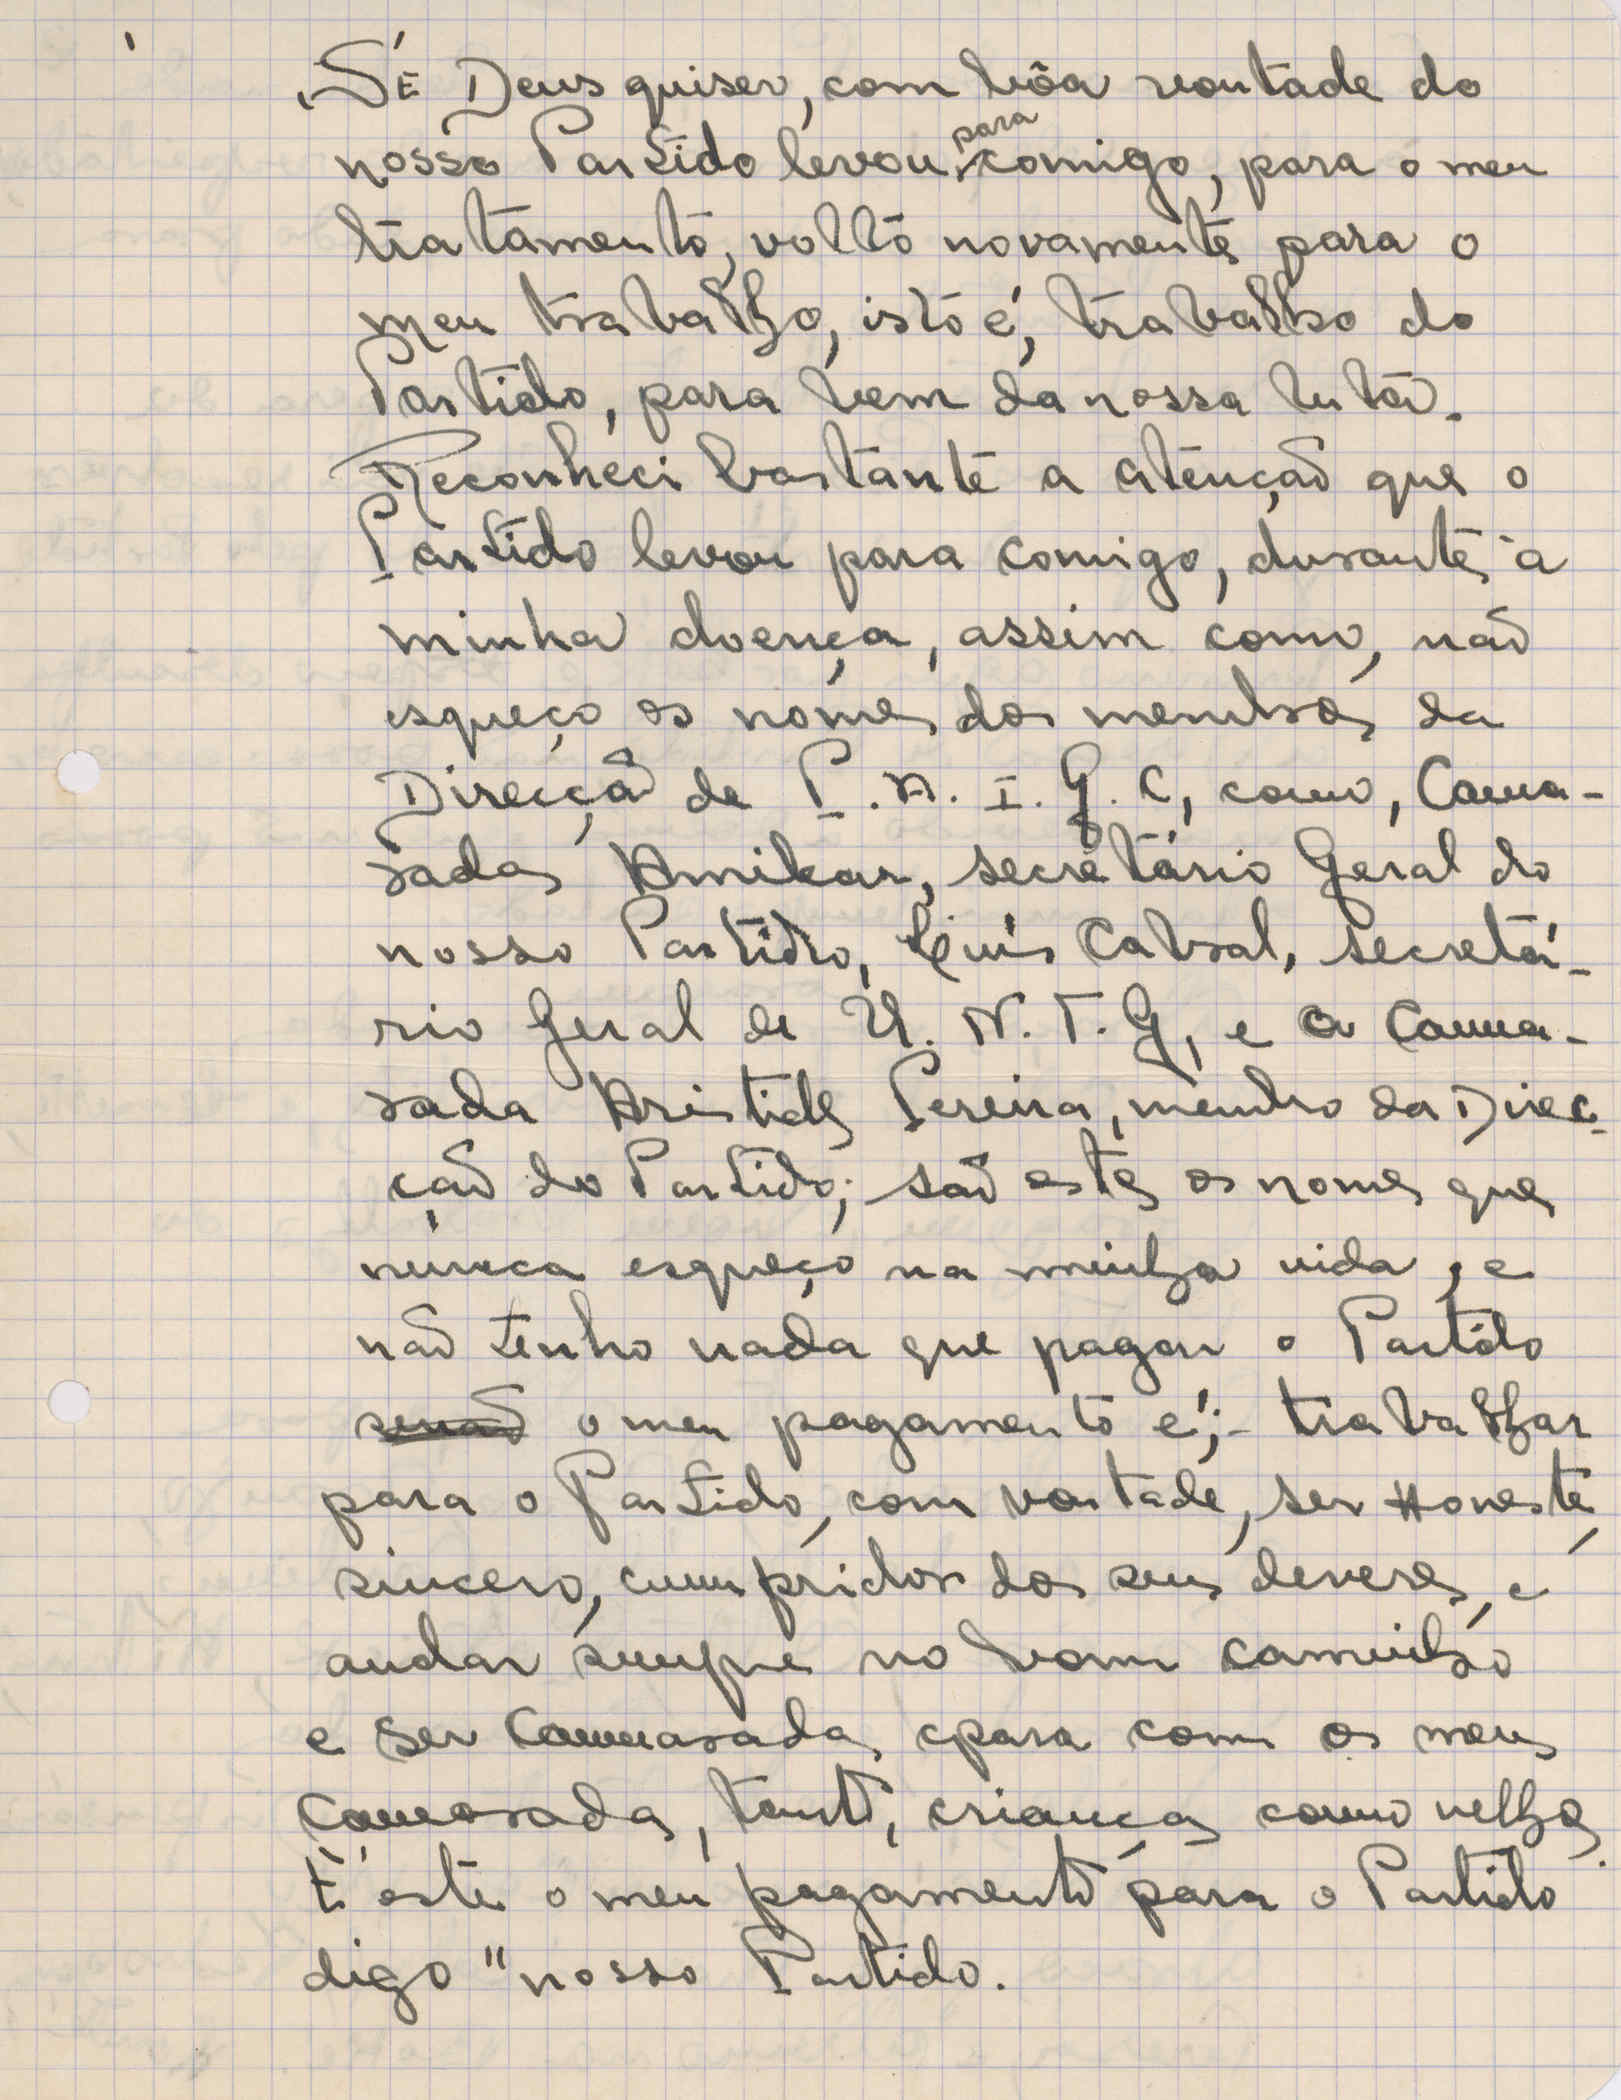 SÉ Deus quiser, com bôa vontade do
nosso Partido levou para comigo, para o meu
tratamento, volto novamente para o
meu trabalho, isto é, trabalho do
Partido, para bem da nossa luta.
Reconheci bastante a atenção que o
Partido levou para comigo, durante a
minha doença, assim como, não
esqueço os nomes dos membros da
Direcção de P. A. I. G. C, como, Cama-
radas Amilcar, secretário Geral do
nosso Partido, Luís Cabral, secretá-
rio Geral de U. N. T. G, e a Cama-
rada Aristides Pereira, membro da Direc-
ção do Partido; são estes os nomes que
nunca esqueço na minha vida, e
não tenho nada que pagar o Partido
senão o meu pagamento é;- trabalhar
para o Partido, com vontade, ser Honeste,
sincero, cumpridor dos seus deveres, e
andar sempre no bom caminho
e ser Camaradas para com os meus
Camaradas, tanto, crianças como velhos.
É este o meu pagamento para o Partido
digo "nosso Partido.